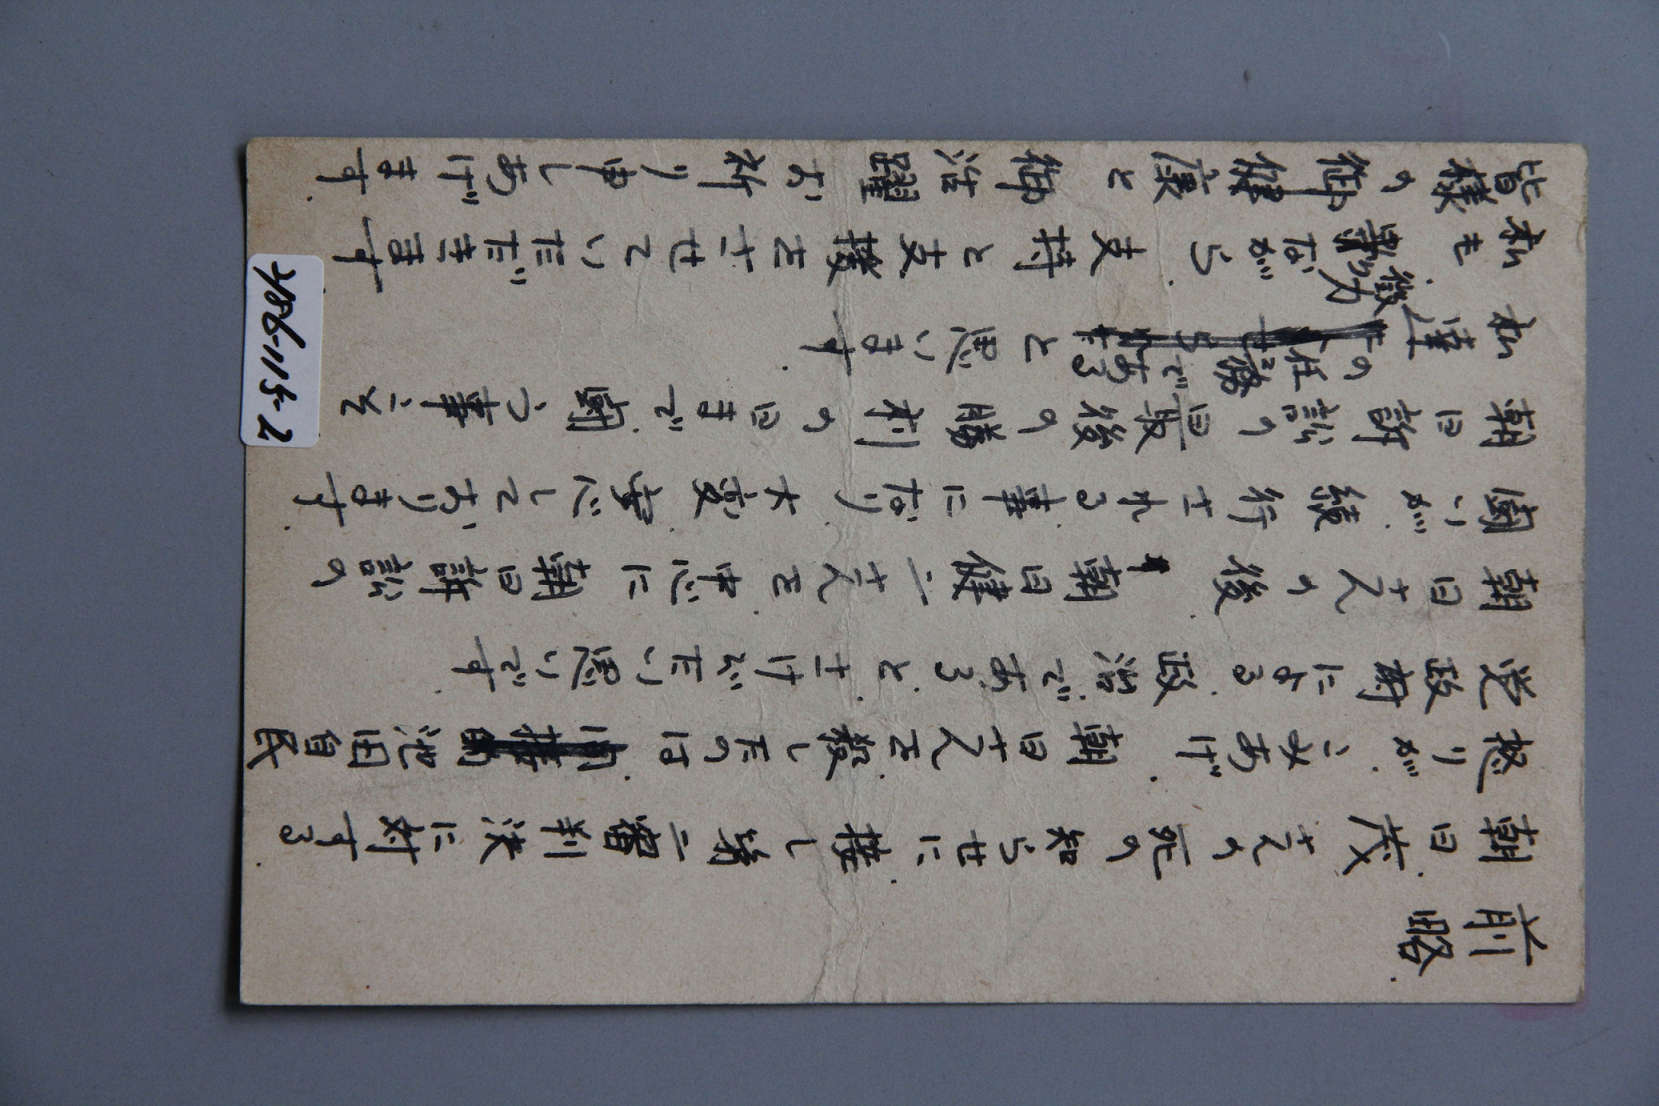 前略
朝日茂さんの死の知らせに接し第二審判決に対する
怒りが、こみあげ、朝日さんを殺したのは、池田自民
党政府による政治であると、さけびたい思いです。
朝日さんの後、朝日健二さんを中心に朝日訴訟の
闘いが、続行される事になり、大変安心しております。
朝日訴訟の最後の勝利の日まで、闘う事こそ
私達の任務であると思います。
私も、微力ながら、支持と支援をさせていただきます。
皆様の御健康と御活躍お祈り申しあげます。
486-115-2